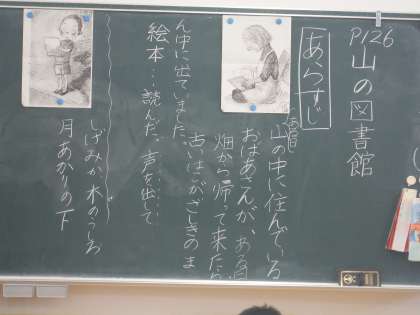 P126
山の図書館
あらすじ
ある日
山の中に住んでいる
おばあさんが、ある日
畑から帰って来たら
古いはこがざしきのま
ん中に出ていました。
絵本…読んだ。声を出して
しげみか木のうしろ
月あかりの下